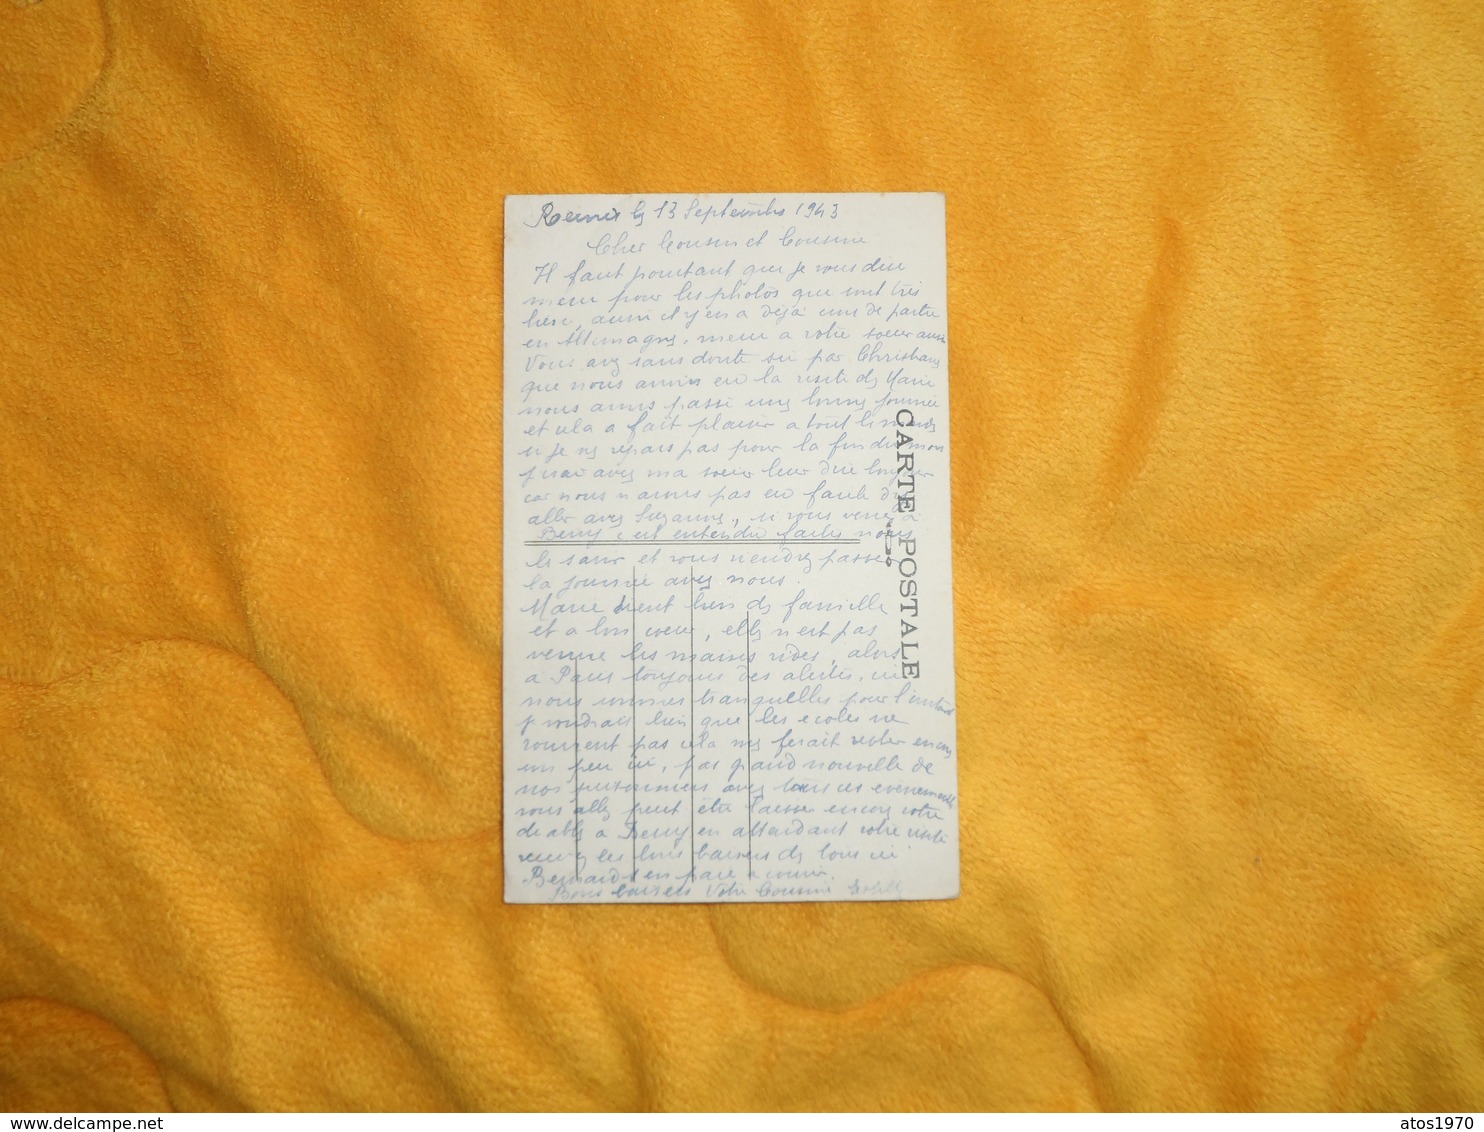 le 13 Septembre 1943
Cher Cousin et Cousine
Il faut pourtant que je vous dise
merci pour les photos que sont très
bien, aussi il y en a déjà une de partie
en Allemagne, merci a votre soeur aussi
Vous avez sans doute su par Christiane
que nous avions eu la visite de Marie
nous avons passé une bonne journée
et cela a fait plaisir a tout le monde
si je ne repars pas pour la fin du mois
j'irai avec ma soeur leur dire bonjour
car nous n'avons pas eu facile d'y
aller avec Suzanne, si vous venez a
Berry c'est entendu faites nous
le savoir et vous viendrez passer
la journée avec nous.
Marie tient bien de famille
et a bon coeur, elle n'est pas
venue les mains vides, alors
a Paris toujours des alertes, ici
nous sommes tranquilles pour l'instant
je voudrais bien que les ecoles ne
rouvrent pas cela me ferait rester encore
un peu ici, pas grand nouvelle de
nos prisonniers avec tous ces evenements
vous allez peut être laisser encore votre
de a Berry en attendant votre visite
recevez les bons baisers de tous ici
Bernard en
Bons baisers Votre Cousine
CARTE POSTALE
atos1970